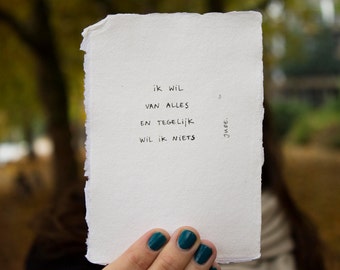 ik wil
van alles
en tegelijk
wil ik niets